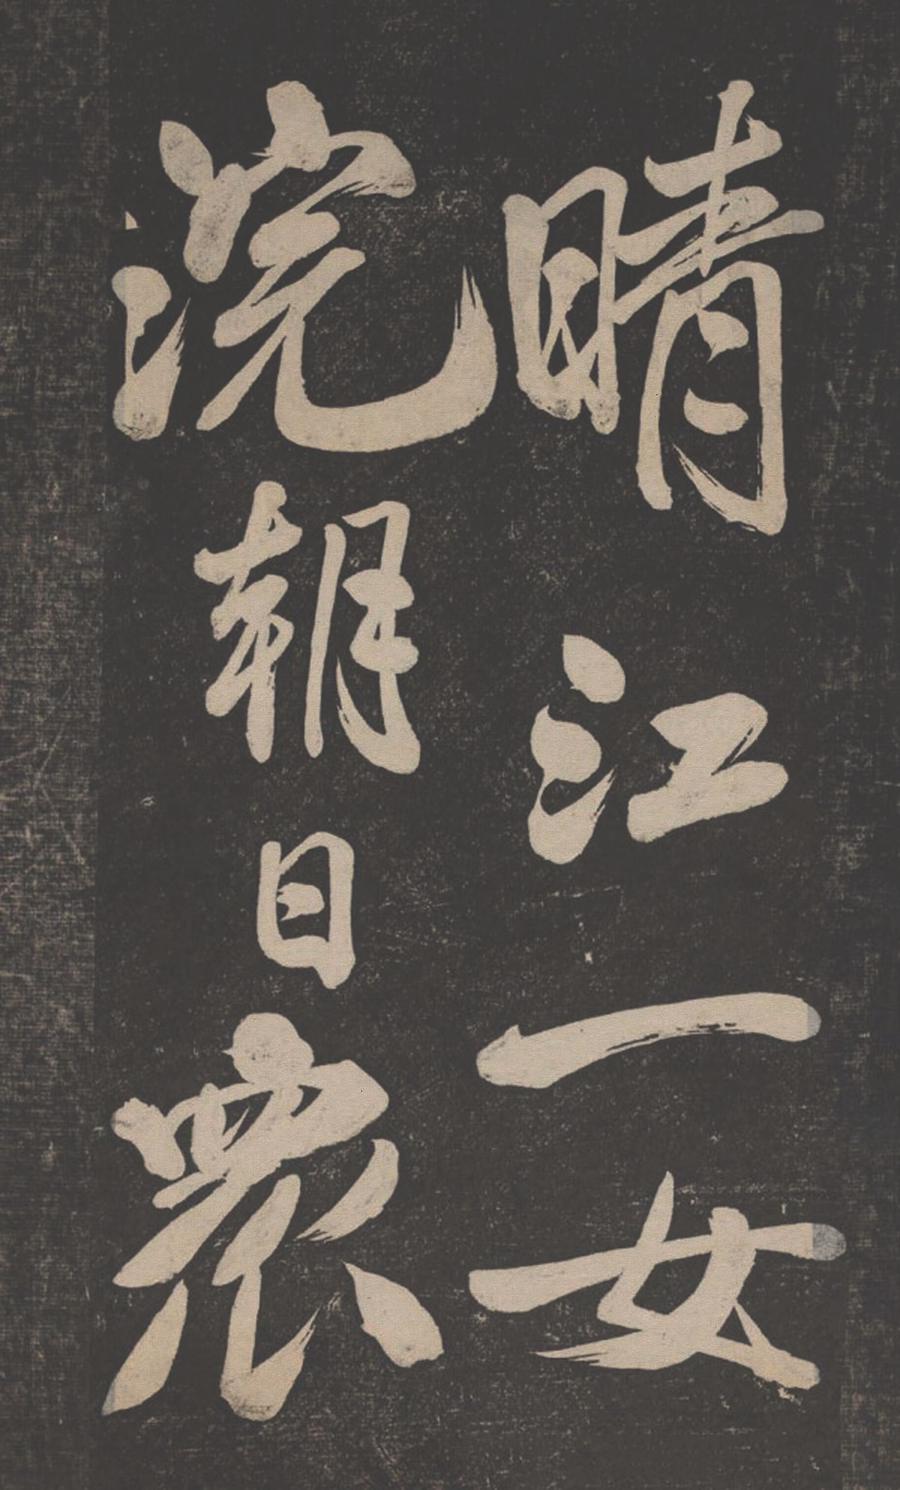 晴江一女
浣朝日眾